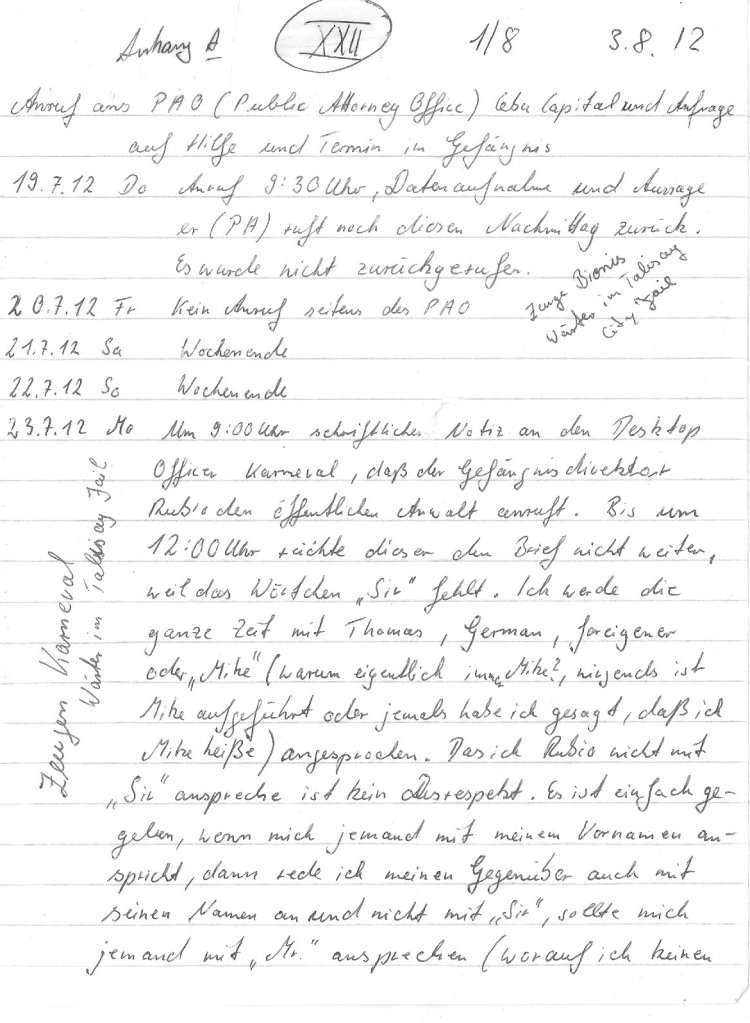 Anhang A XXII 1/8 3.8.12
Anruf ans PAO (Public Attorney Office) Cebu Capital und Anfrage
auf Hilfe und Termin im Gefängnis
19.7.12 Do Anruf 9:30 Uhr, Datenaufnahme und Aussage
er (PA) ruft noch diesen Nachmittag zurück.
Es wurde nicht zurückgerufen.
Zeuge Bionus
Wärter im Talisay
City Jail
20.7.12 Fr Kein Anruf seitens des PAO
21.7.12 Sa Wochenende
22.7.12 So Wochenende
23.7.12 Mo Um 9:00 Uhr schriftlicher Notiz an den Desktop
Officer Karneval, daß der Gefängnisdirektor
Rubio den öffentlichen Anwalt anruft. Bis um
12:00 Uhr reichte dieser den Brief nicht weiter,
weil das Wörtchen „Sir" fehlt. Ich werde die
ganze Zeit mit Thomas, German, foreigener
oder „Mike" (warum eigentlich immer Mike?, nirgends ist
Mike aufgeführt oder jemals habe ich gesagt, daß ich
Mike heiße) angesprochen. Das ich Rubio nicht mit
„Sir" anspreche ist kein Disrespekt. Es ist einfach ge-
geben, wenn mich jemand mit meinem Vornamen an-
spricht, dann rede ich meinen Gegenüber auch mit
seinen Namen an und nicht mit „Sir", sollte mich
jemand mit „Mr." ansprechen (worauf ich keinen
Zeugen Karneval
Wärter im Talisay Jail